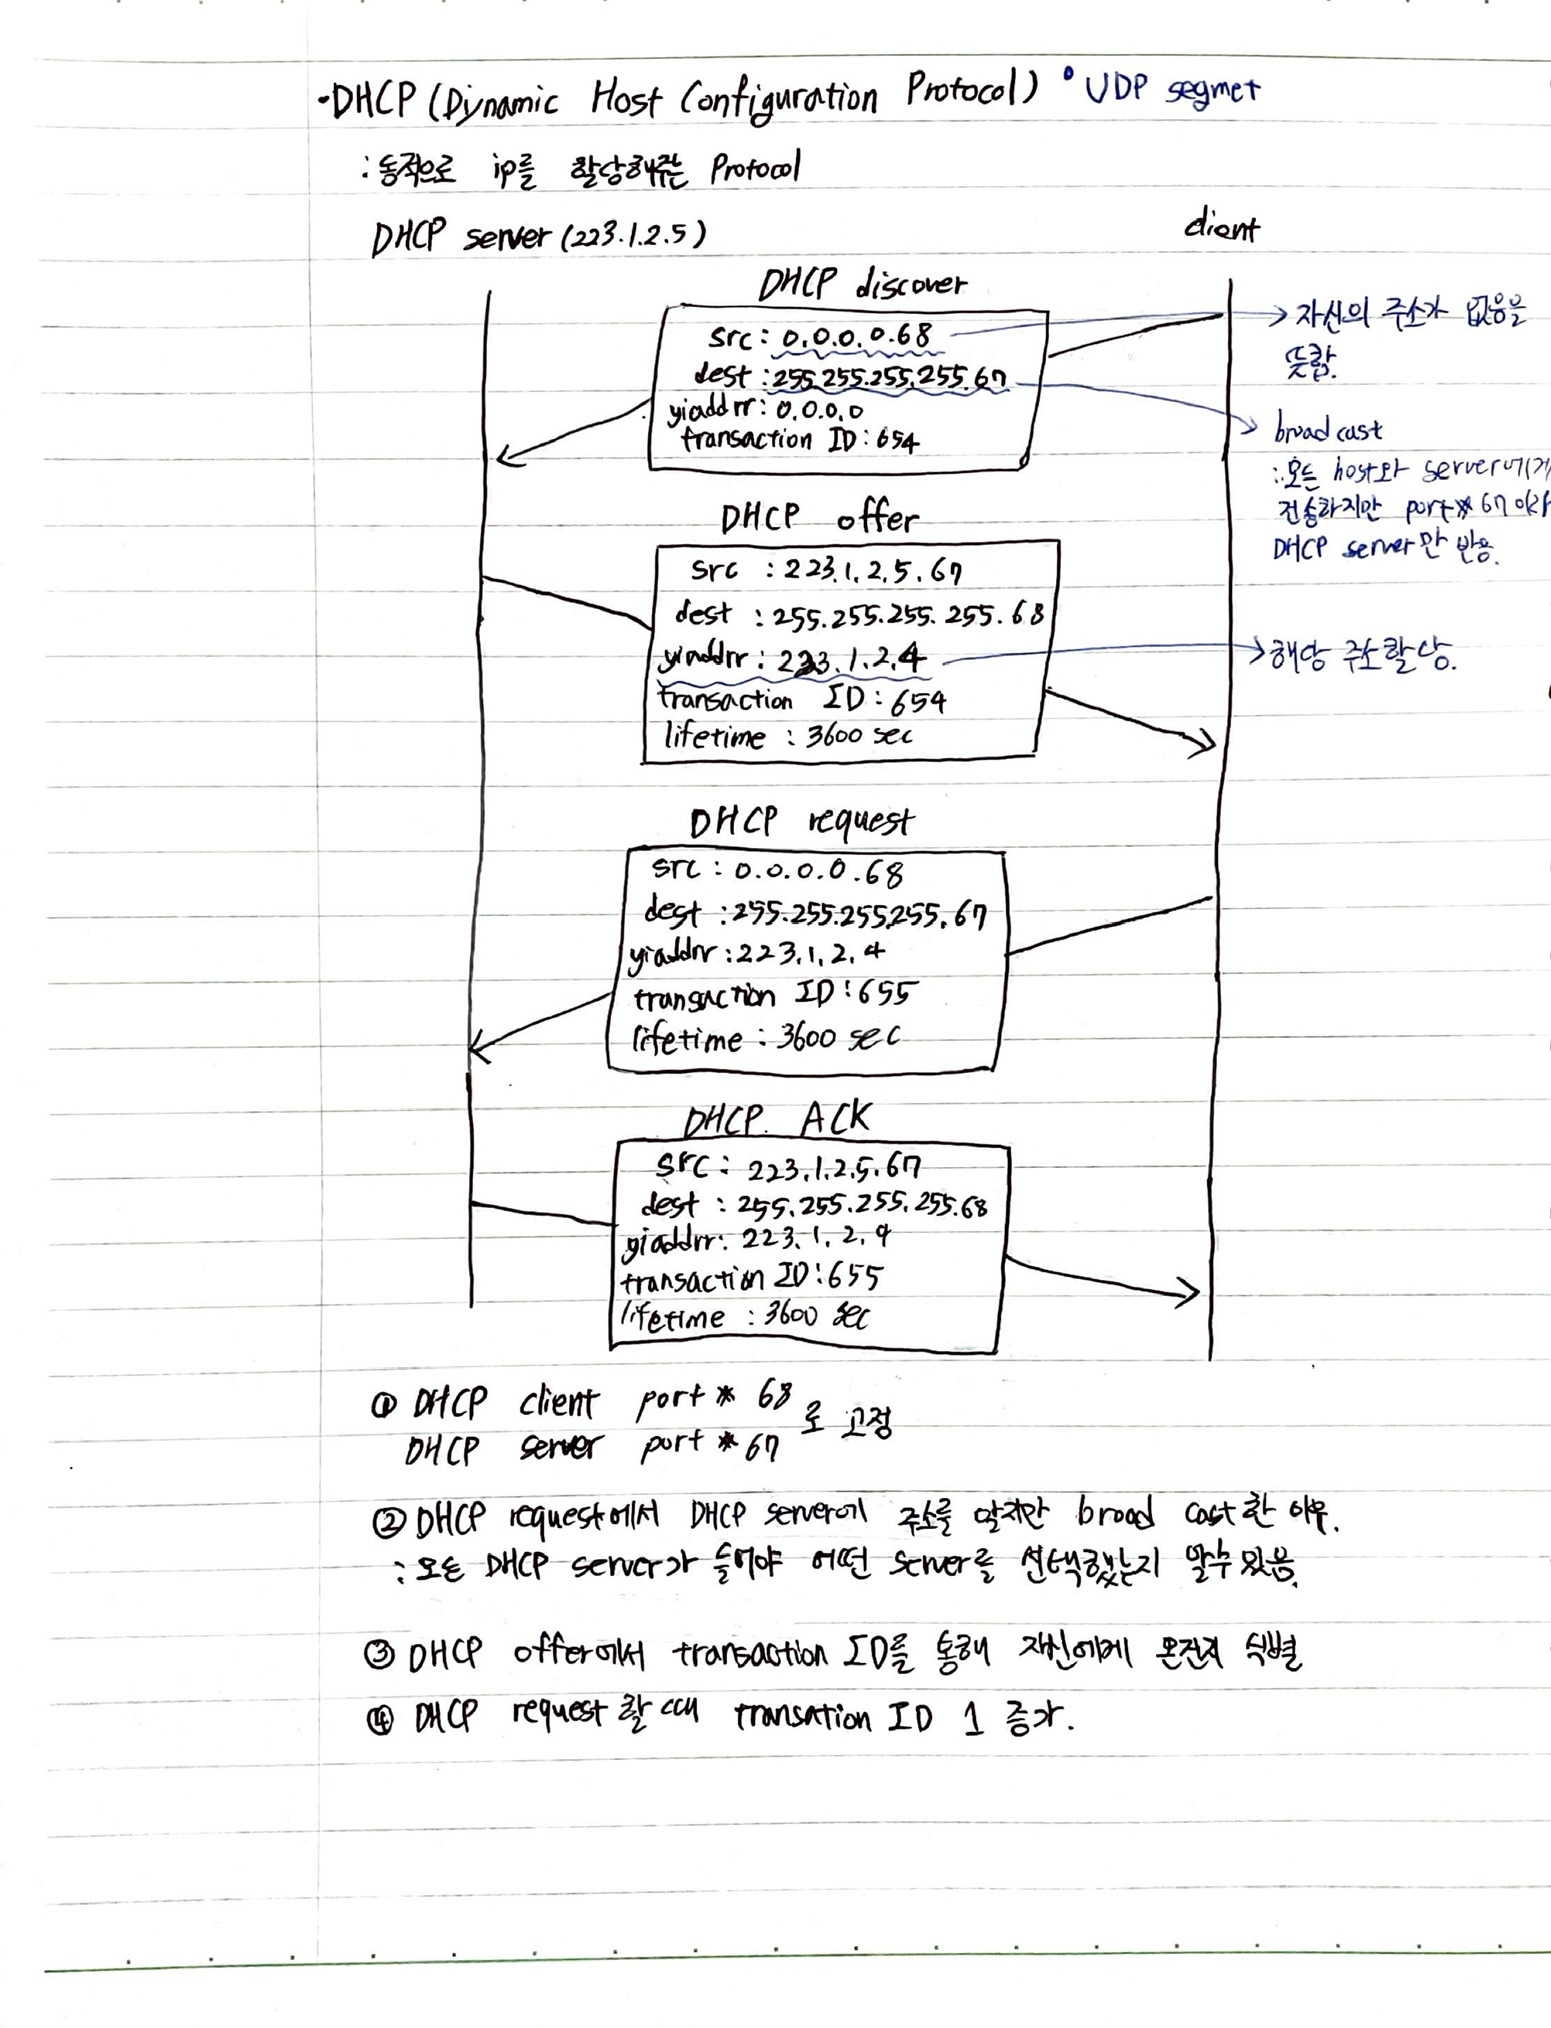 ·DHCP (Dynamic Host Configuration Protocol) ° UDP segmet
: 동적으로 ip를 할당해주는 Protocol
DHCP server (223.1.2.5)
client
DHCP discover
src : 0.0.0.0.68
dest : 255.255.255.255.67
yiaddrr : 0.0.0.0
transaction ID : 654
→ 자신의 주소가 없음을
뜻함.
→ broad cast
: 모든 host와 server에게
전송하지만 port* 67
DHCP server만 반응.
DHCP offer
src : 223.1.2.5.67
dest : 255.255.255.255.68
yiaddrr : 223.1.2.4
→ 해당 주소할당.
transaction ID : 654
lifetime : 3600 sec
DHCP request
src : 0.0.0.0.68
dest : 255.255.255.255.67
yiaddrr : 223.1.2.4
transaction ID : 655
lifetime : 3600 sec
DHCP. ACK
src : 223.1.2.5.67
dest : 255.255.255.255.68
yiaddrr : 223.1.2.4
transaction ID : 655
lifetime : 3600 sec
① DHCP client port * 68 로 고정
DHCP server port * 67
② DHCP request에서 DHCP server에 주소를 알지만 broad cast한 이유.
: 모든 DHCP server가 들어야 어떤 server를 선택했는지 알수 있음.
③ DHCP offer에서 transaction ID를 통해 자신에게 온건지 식별
④ DHCP request 할 때 transation ID 1 증가.